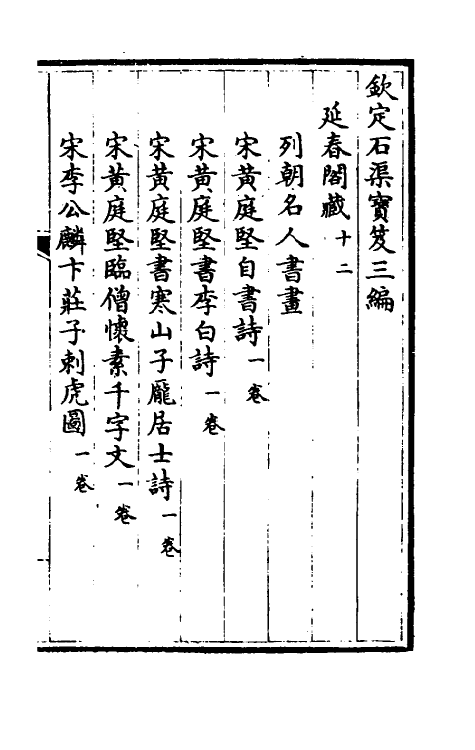 欽定石渠寶笈三編
延春閣藏十二
列朝名人書畫
宋黃庭堅自書詩一卷
宋黃庭堅書李白詩一卷
宋黃庭堅書寒山子龐居士詩一卷
宋黃庭堅臨僧懷素千字文一卷
宋李公麟卞莊子刺虎圖一卷